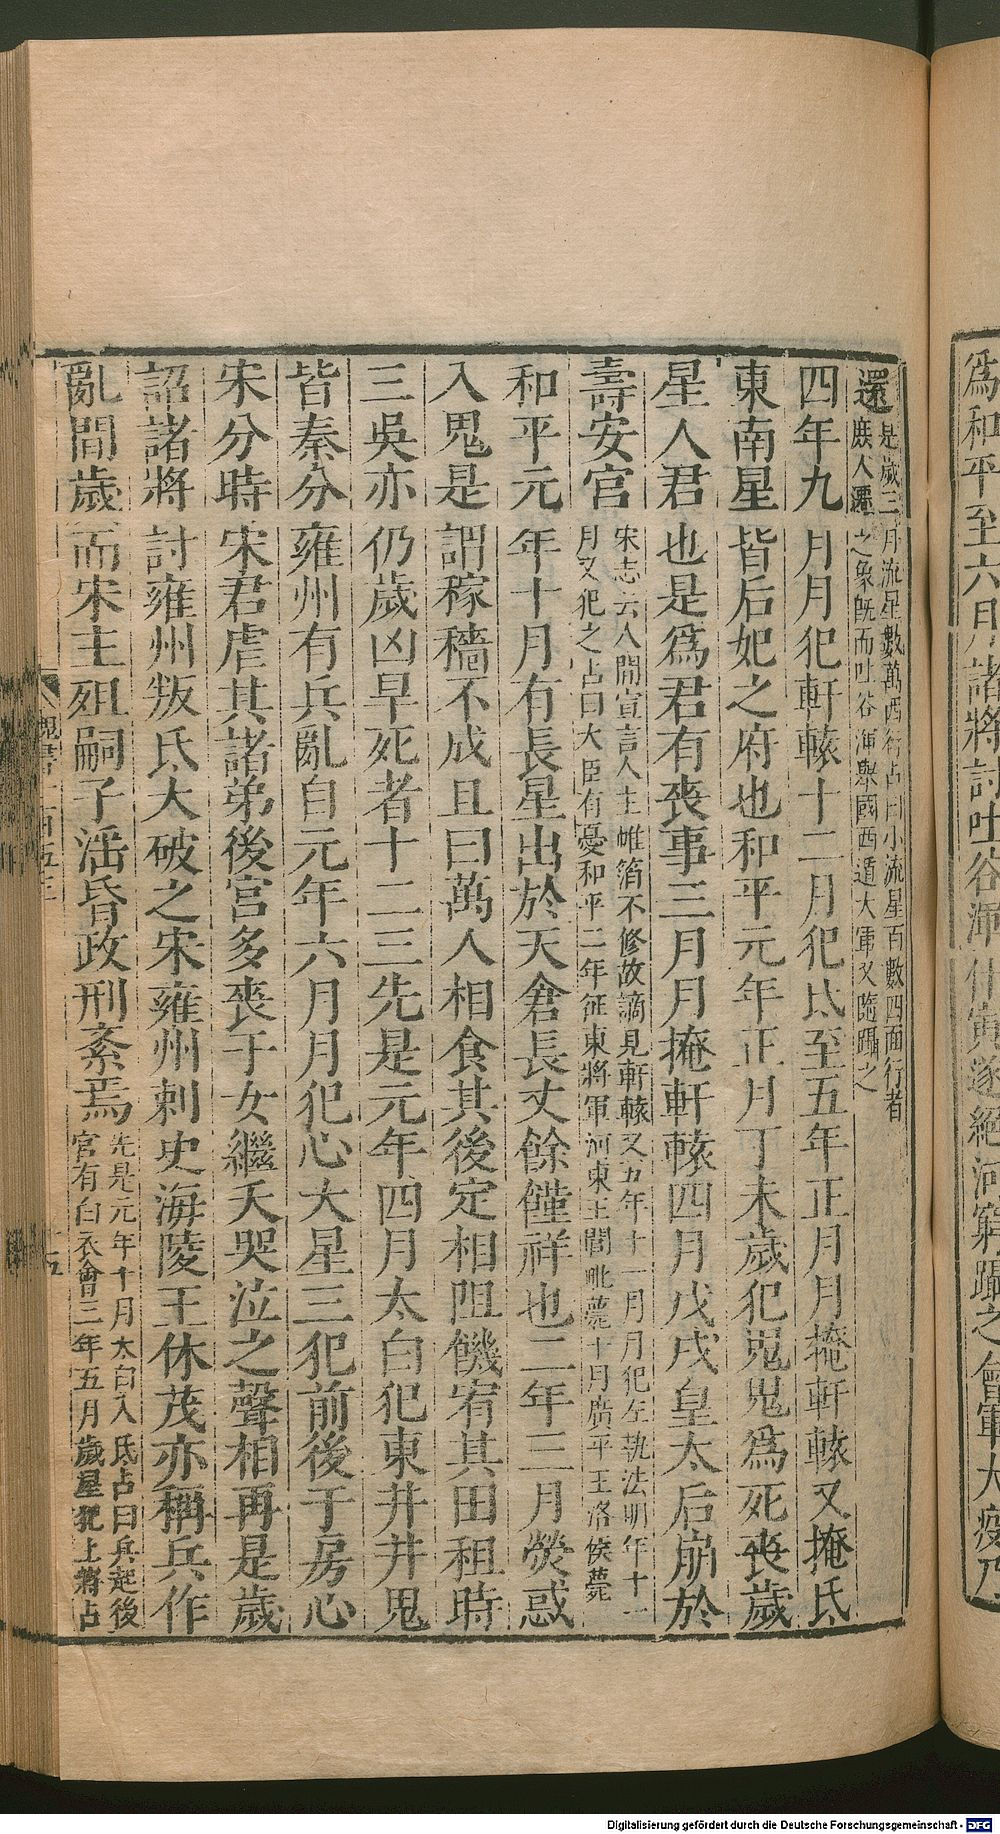 爲和平至六月諸將討吐谷渾什寅遂絕河窮躡之會軍大疫乃
還是歲三月流星數萬西行占曰小流星百數四面行者
庶人遷之象旣而吐谷渾舉國西遁大軍又隨躡之
四年九月月犯軒轅十二月犯氐至五年正月月掩軒轅又掩氐
東南星皆后妃之府也和平元年正月丁未歲犯鬼鬼爲死喪歲
星人君也是爲君有喪事三月月掩軒轅四月戊戌皇太后崩於
壽安宮宋志云人閒宣言人主帷箔不修故謫見軒轅又五年十一月月犯左執法明年十一
月又犯之占曰大臣有憂和平二年征東將軍河東王閭毗薨十月廣平王洛侯薨
和平元年十月有長星出於天倉長丈餘饉祥也二年三月熒惑
入鬼是謂稼穡不成且曰萬人相食其後定相阻饑宥其田租時
三吳亦仍歲凶旱死者十二三先是元年四月太白犯東井井鬼
皆秦分雍州有兵亂自元年六月月犯心大星三犯前後于房心
宋分時宋君虐其諸弟後宮多喪子女繼夭哭泣之聲相再是歲
詔諸將討雍州叛氐大破之宋雍州刺史海陵王休茂亦稱兵作
亂間歲而宋主殂嗣子淫昏政刑紊焉先是元年十月太白入氐占曰兵起後
宮有白衣會三年五月歲星犯上將占
十五
Digitalisierung gefördert durch die Deutsche Forschungsgemeinschaft - DFG